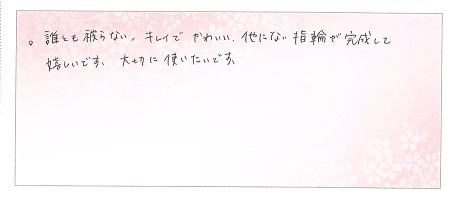 。誰とも被らない、キレイでかわいい、他にない指輪が完成して
嬉しいです、大切に使いたいです。